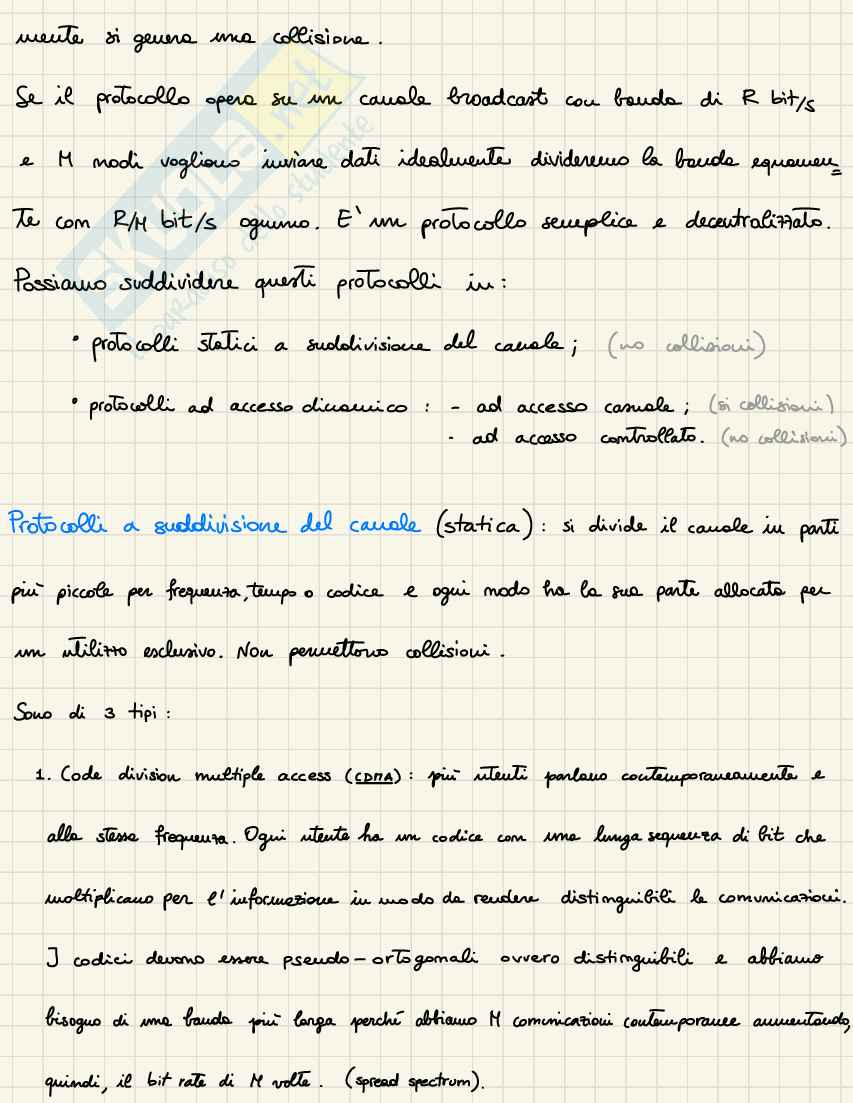 mente si genera una collisione.
Se il protocollo opera su un canale broadcast con banda di R bit/s
e M nodi vogliono inviare dati idealmente divideremo la banda equamen=
te con R/M bit/s ognuno. E' un protocollo semplice e decentralizzato.
Possiamo suddividere questi protocolli in:
• protocolli statici a suddivisione del canale; (no collisioni)
• protocolli ad accesso dinamico: - ad accesso casuale; (si collisioni)
- ad accesso controllato. (no collisioni)
Protocolli a suddivisione del canale (statica): si divide il canale in parti
più piccole per frequenza, tempo o codice e ogni nodo ha la sua parte allocata per
un utilizzo esclusivo. Non permettono collisioni.
Sono di 3 tipi:
1. Code division multiple access (CDMA): più utenti parlano contemporaneamente e
alla stessa frequenza. Ogni utente ha un codice con una lunga sequenza di bit che
moltiplicano per l'informazione in modo da rendere distinguibili le comunicazioni.
I codici devono essere pseudo-ortogonali ovvero distinguibili e abbiamo
bisogno di una banda più larga perché abbiamo M comunicazioni contemporanee aumentando,
quindi, il bit rate di M volte. (spread spectrum).
SKUOLA.net
il paradiso dello studente